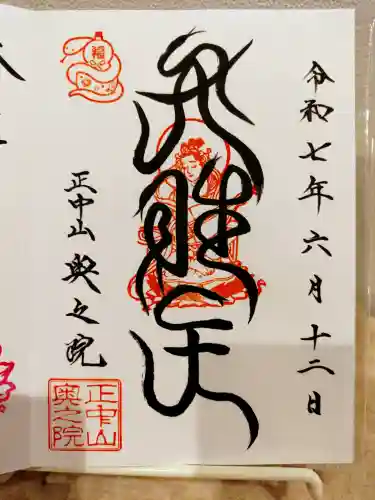 令和七年六月十二日
弁財天
福
正中山
奥之院
正中山
奥之院